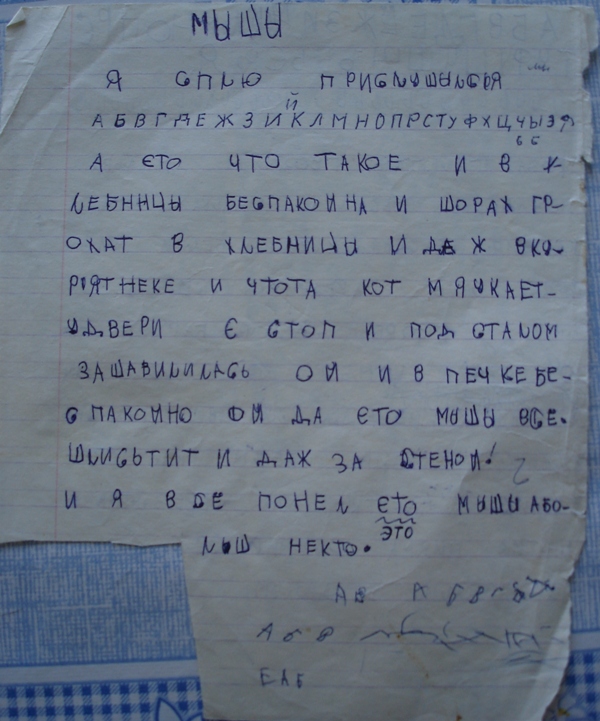 МЫШЫ
Я СПЛЮ ПРИСЛУШЫЛСЯ
АБВГДЕЖЗИЙКЛМНОПРСТУФХЦЧЫЭЯ
А ЄТО ЧТО ТАКОЕ И В Х-
ЛЕБНИЦЫ БЕСПАКОИНА И ШОРАХ ГР-
ОХАТ В ХЛЕБНИЦЫ И ДАЖ ВКО-
РЯТНЕКЕ И ЧТОТА КОТ МЯУКАЕТ-
УДВЕРИ Є СТОП И ПОД СТАЛОМ
ЗАШАВИЛИЛАСЬ ОЙ И В ПЕЧКЕ БЕ-
СПАКОИНО ОЙ ДА ЄТО МЫШЫ ВСЕ.
ШЛИСЬТИТ И ДАЖ ЗА СТЕНОЙ!
И Я ВСЕ ПОНЕЛ ЄТО МЫШЫ АБО-
ЭТО
ЛЬШ НЕКТО.
АБ А БВГ
А б в
ЕАБ